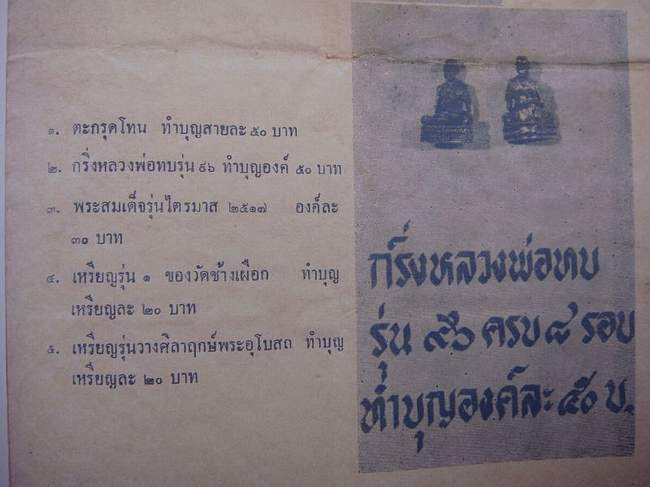 ๑. ตะกรุดโทน ทำบุญสายละ ๕๐ บาท
๒. กริ่งหลวงพ่อทบรุ่น ๙๖ ทำบุญองค์ ๕๐ บาท
๓. พระสมเด็จรุ่นไตรมาส ๒๕๑๗ องค์ละ
๓๐ บาท
๔. เหรียญรุ่น ๑ ของวัดช้างเผือก ทำบุญ
เหรียญละ ๒๐ บาท
๕. เหรียญรุ่นวางศิลาฤกษ์พระอุโบสถ ทำบุญ
เหรียญละ ๒๐ บาท
กริ่งหลวงพ่อทบ
รุ่น ๙๖ ครบ ๘ รอบ
ทำบุญองค์ละ ๕๐ บ.